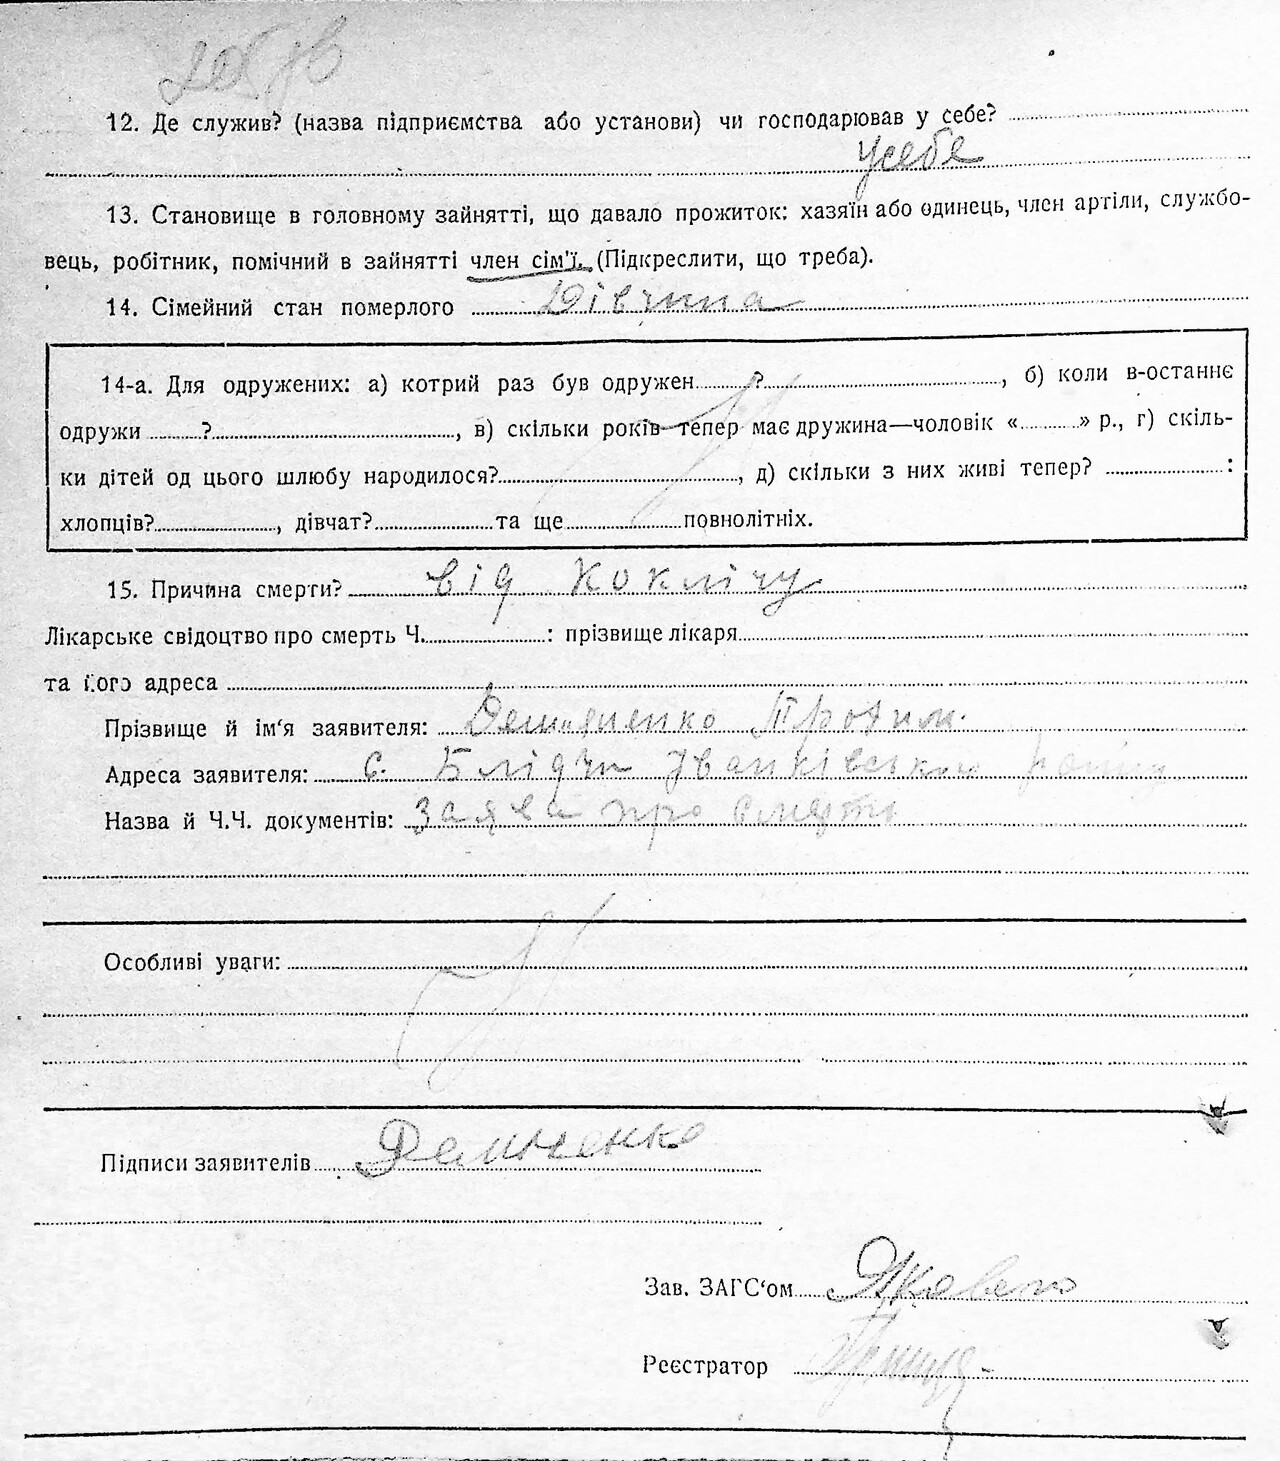 12. Де служив? (назва підприємства або установи) чи господарював у себе?
усебе
13. Становище в головному зайнятті, що давало прожиток: хазяїн або одинець, член артіли, службо-
вець, робітник, помічний в зайнятті член сім'ї. (Підкреслити, що треба).
14. Сімейний стан померлого Дівчина
14-а. Для одружених: а) котрий раз був одружен ? , б) коли в-останнє
одружи ? , в) скільки років тепер має дружина—чоловік « » р., г) скіль-
ки дітей од цього шлюбу народилося? , д) скільки з них живі тепер? :
хлопців? , дівчат? та ще повнолітніх.
15. Причина смерти? від коклічу
Лікарське свідоцтво про смерть Ч. : прізвище лікаря
та його адреса
Прізвище й ім'я заявителя: Демьяненко Трохим
Адреса заявителя: с. Блідчи Іванківського району
Назва й Ч.Ч. документів: Заява про смерть
Особливі уваги:
Підписи заявителів
Зав. ЗАГС'ом
Реєстратор